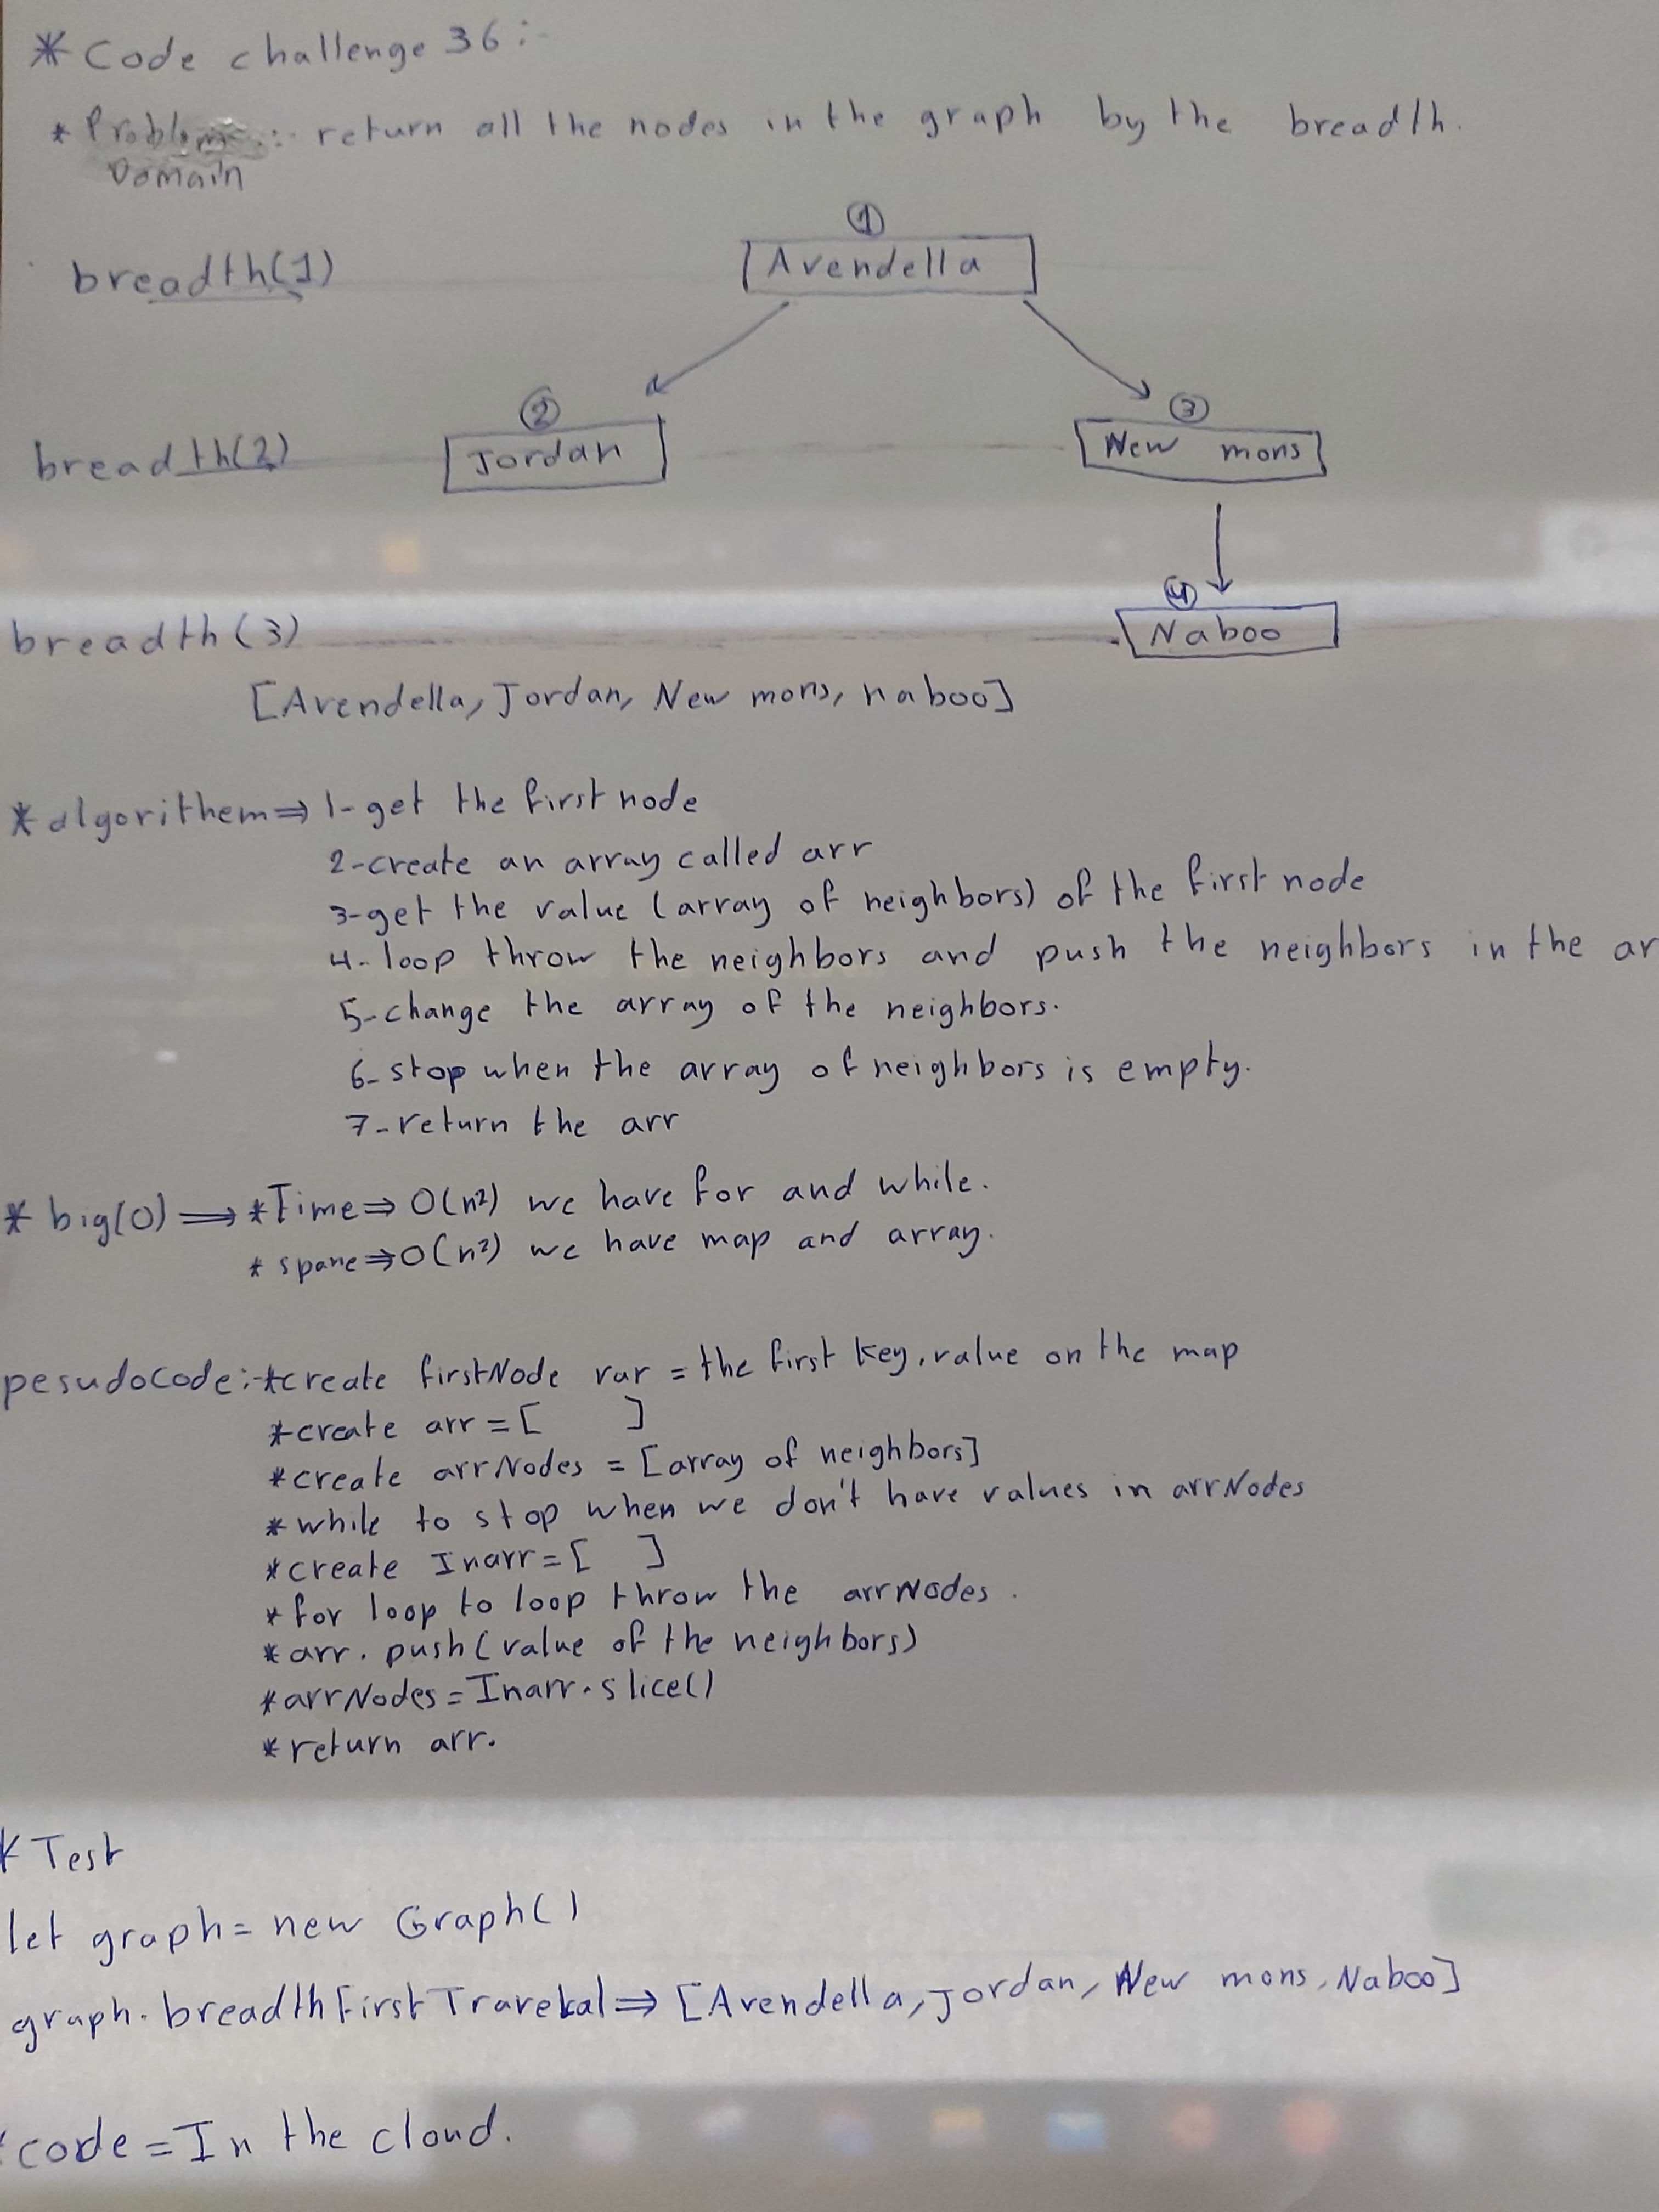 * Code challenge 36:-
* Problem : return all the nodes in the graph by the breadth.
Domain
1
breadth(1) Avendella
2 3
breadth(2) Jordan New mons
4
breadth(3) Naboo
[Avendella, Jordan, New mons, naboo]
* algorithem⇒ 1-get the first node
2-create an array called arr
3-get the value (array of neighbors) of the first node
4-loop throw the neighbors and push the neighbors in the ar
5-change the array of the neighbors.
6-stop when the array of neighbors is empty.
7-return the arr
* big(O) ⇒ *Time⇒ O(n²) we have for and while.
* spane⇒O(n²) we have map and array.
pesudocode:-*create firstNode var = the first key, value on the map
*create arr=[ ]
*create arrNodes = [array of neighbors]
*while to stop when we don't have values in arrNodes
*create Inarr=[ ]
*for loop to loop throw the arrNodes.
*arr.push(value of the neighbors)
*arrNodes=Inarr.slice()
*return arr.
* Test
let graph= new Graph()
graph.breadthFirstTravekal⇒ [Avendella, Jordan, New mons, Naboo]
*code=In the cloud.